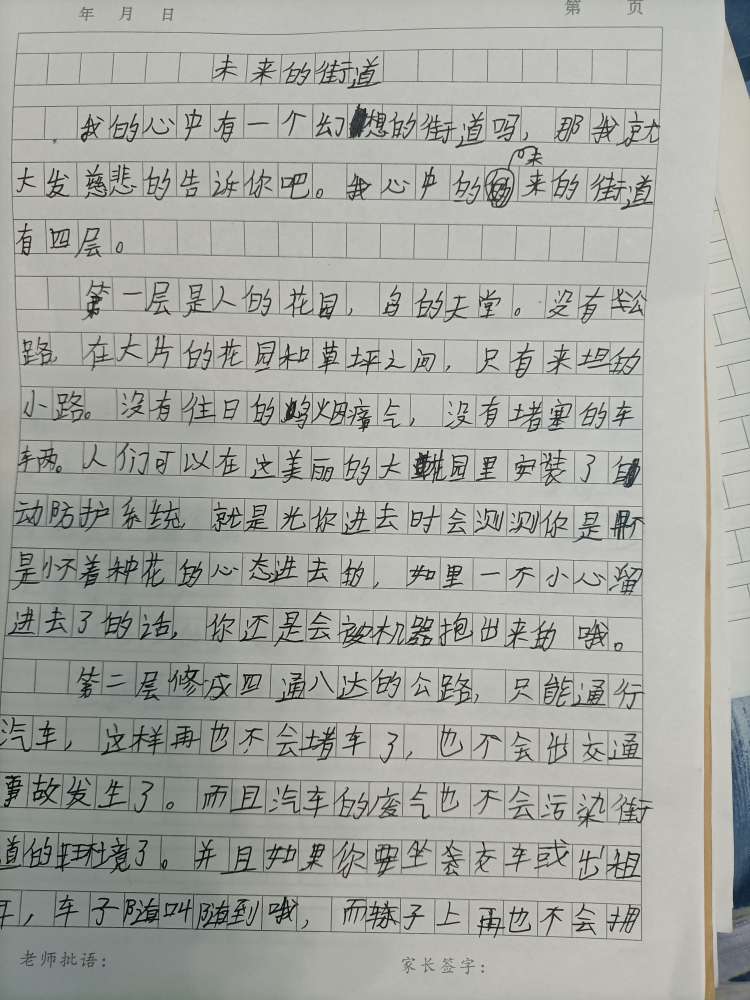 年 月 日
第 页
未来的街道
我的心中有一个幻想的街道吗，那我就
大发慈悲的告诉你吧。我心中的未来的街道
有四层。
第一层是人的花园，鸟的天堂。没有公
路，在大片的花园和草坪之间，只有来坦的
小路。没有往日的乌烟瘴气，没有堵塞的车
车两。人们可以在这美丽的大花园里安装了自
动防护系统，就是光你进去时会测测你是不
是怀着种花的心态进去的，如里一不小心溜
进去了的话，你还是会被机器抱出来的哦。
第二层修成四通八达的公路，只能通行
汽车，这样再也不会堵车了，也不会出交通
事故发生了。而且汽车的废气也不会污染街
道的环境了。并且如果你要坐公交车或出租
车，车子随叫随到哦，而辕子上再也不会拥
老师批语：
家长签字：